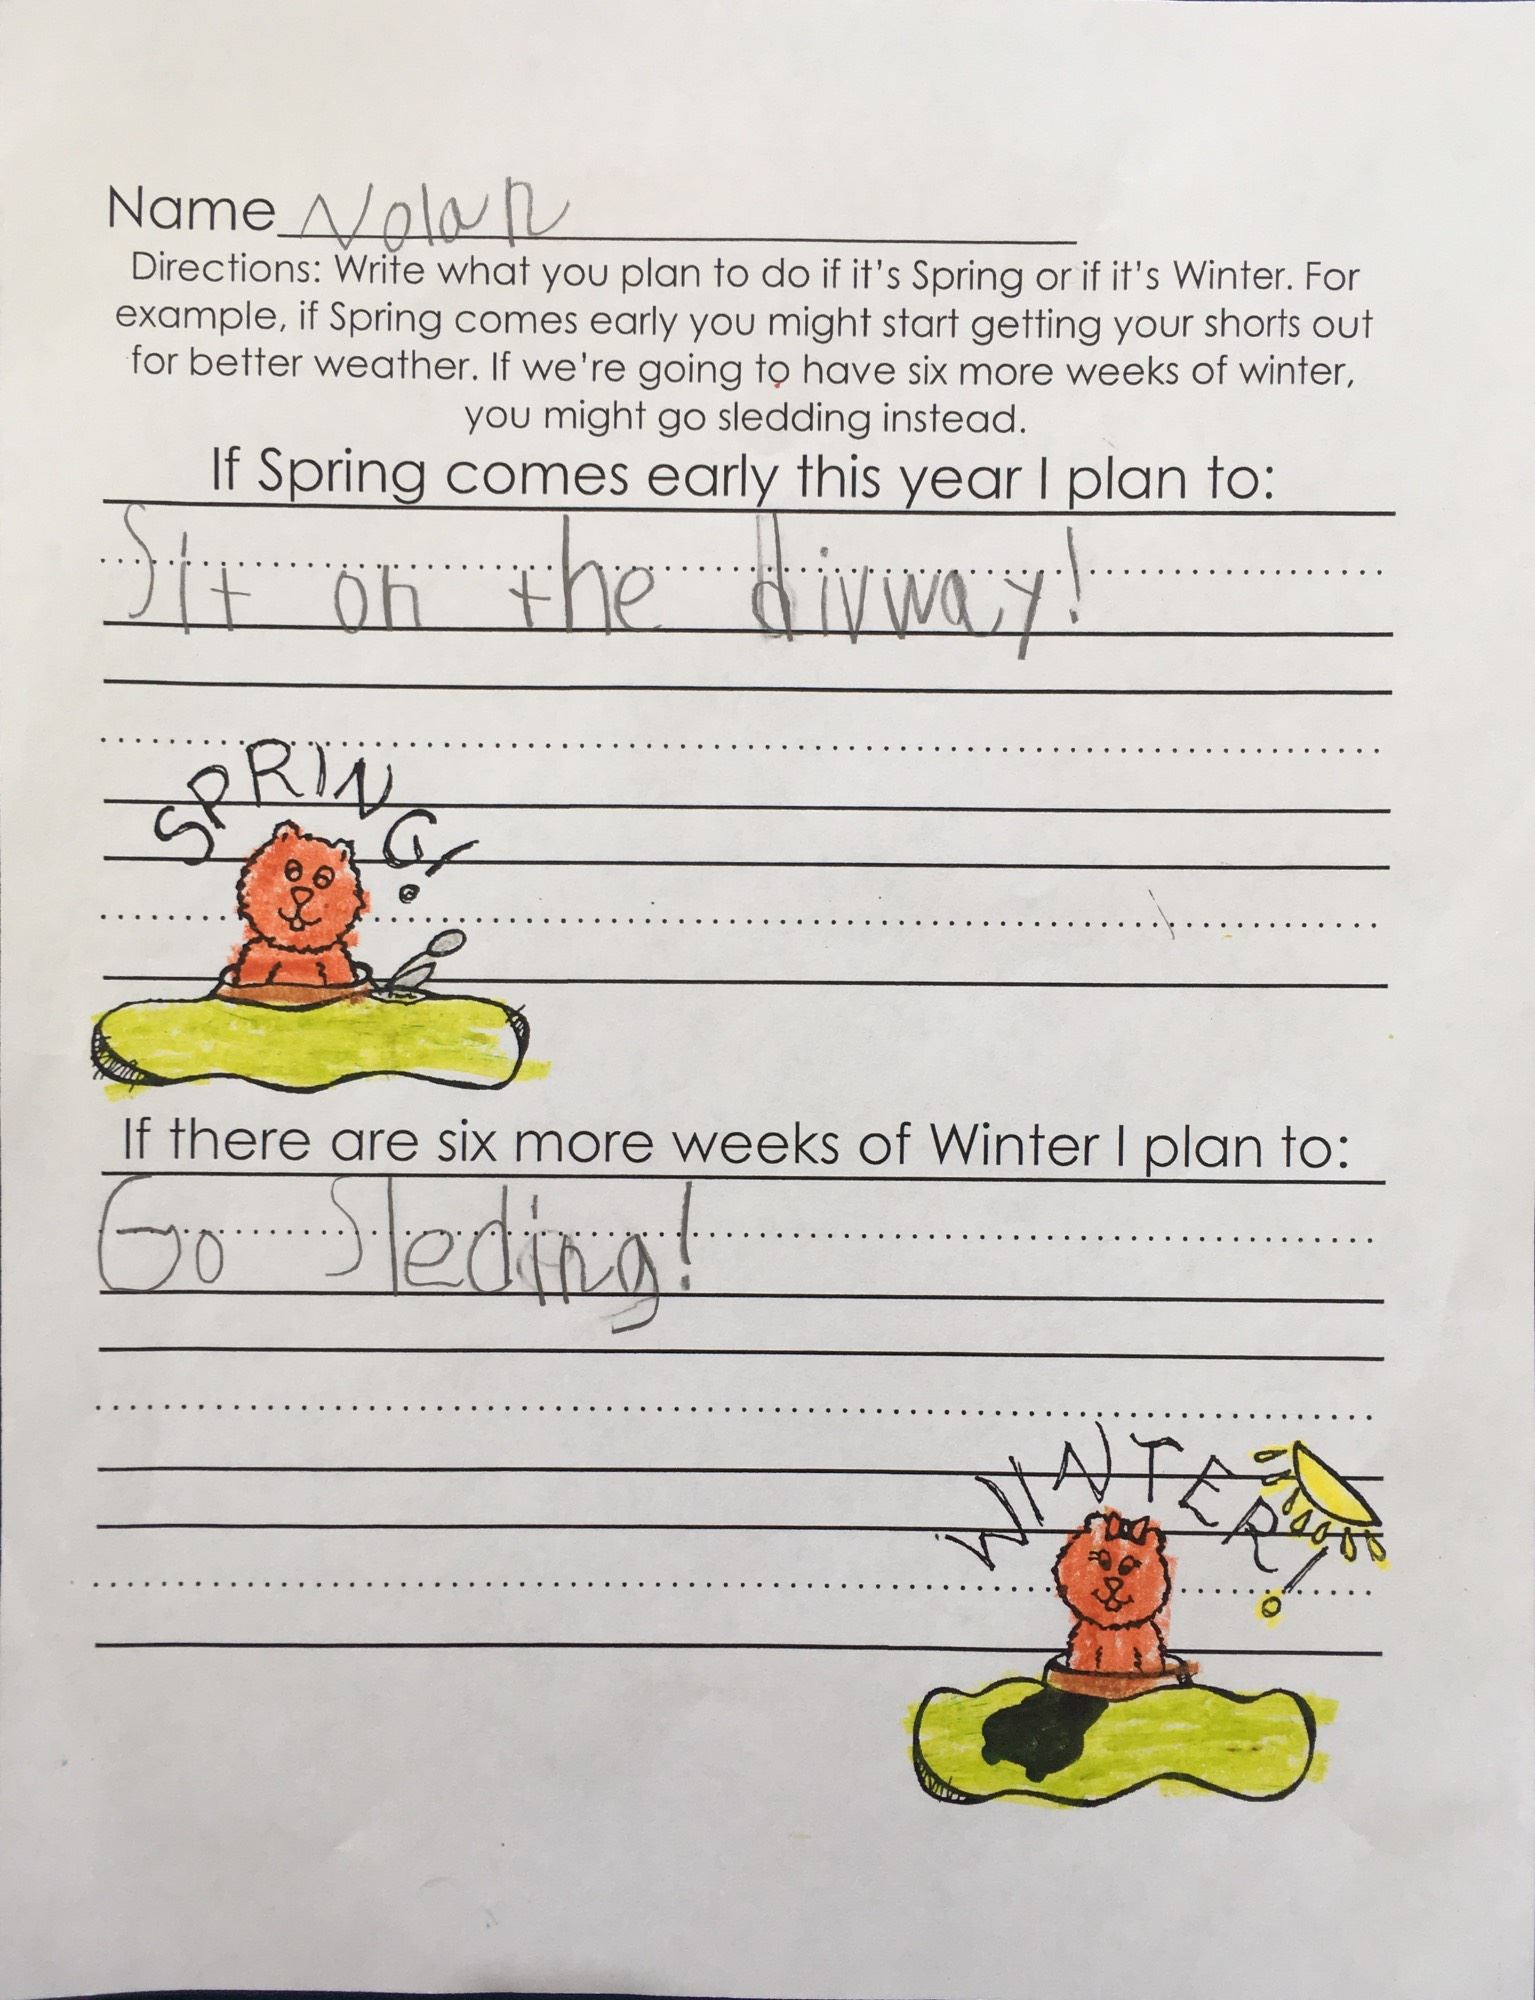 Name Nolan
Directions: Write what you plan to do if it's Spring or if it's Winter. For
example, if Spring comes early you might start getting your shorts out
for better weather. If we're going to have six more weeks of winter,
you might go sledding instead.
If Spring comes early this year I plan to:
Sit on the divway!
SPRING!
If there are six more weeks of Winter I plan to:
Go Sleding!
WINTER!